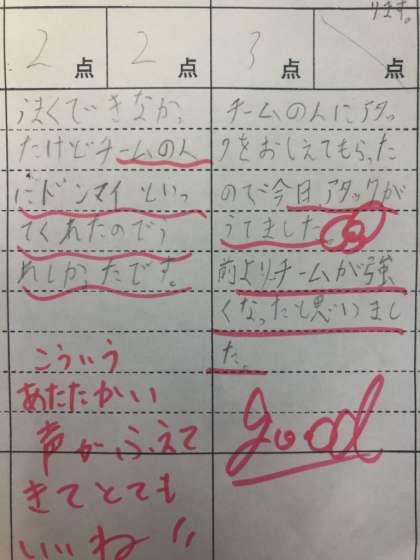 ります。
2点
2点
3点
点
うまくできなかっ
たけどチームの人
にドンマイといっ
てくれたのでう
れしかったです。
こういう
あたたかい
声がふえて
きてとても
いいね
チームの人にアタッ
クをおしえてもらった
ので今日アタックが
うてました。
前よりチームが強
くなったと思いまし
た。
Good